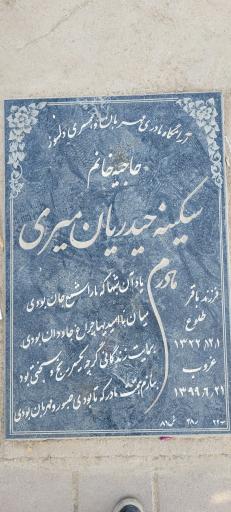 آرامگاه مادری مهربان و همسری دلسوز
حاجیه خانم
سکینه حیدریان میری
مادرم
فرزند باقر
طلوع
۱۳۲۲٫۸٫۱
غروب
۱۳۹۹٫۶٫۲۱
یاد آن شبها که ما را شمع جان بودی
میان ناامیدیها چراغ جاودان بودی
برایت زندگانی گرچه یکسر رنج و سختی بود
بنازم همتت مادر که تا بودی صبور و مهربان بودی